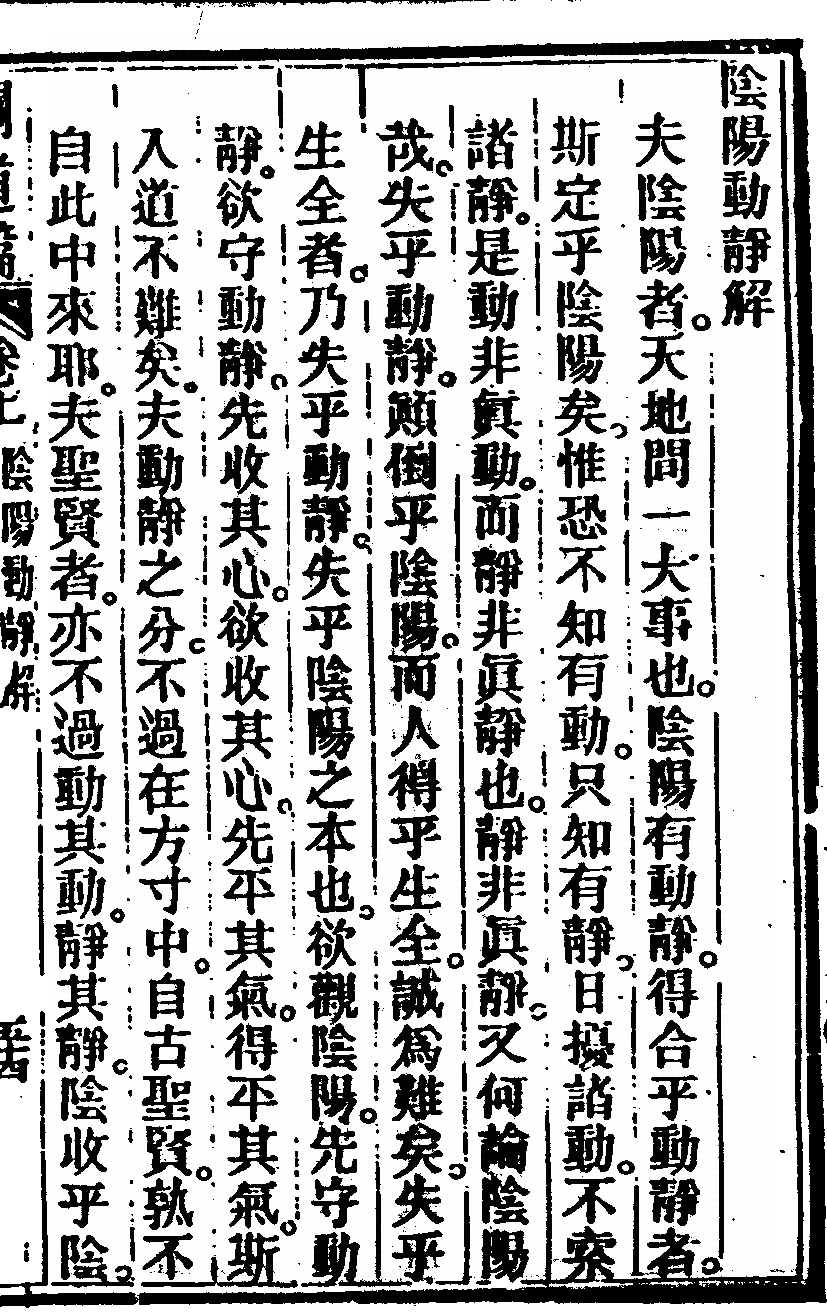 陰陽動靜解
夫陰陽者。天地間一大事也。陰陽有動靜。得合乎動靜者。
斯定乎陰陽矣。惟恐不知有動。只知有靜。日擾諸動。不索
諸靜。是動非眞動。而靜非眞靜也。靜非眞靜。又何論陰陽
哉。失乎動靜。顛倒乎陰陽。而人得乎生全。誠爲難矣。失乎
生全者。乃失乎動靜。失乎陰陽之本也。欲觀陰陽。先守動
靜。欲守動靜。先收其心。欲收其心。先平其氣。得平其氣。斯
入道不難矣。夫動靜之分。不過在方寸中。自古聖賢。孰不
自此中來耶。夫聖賢者。亦不過動其動。靜其靜。陰收乎陰。
卷上 陰陽動靜解